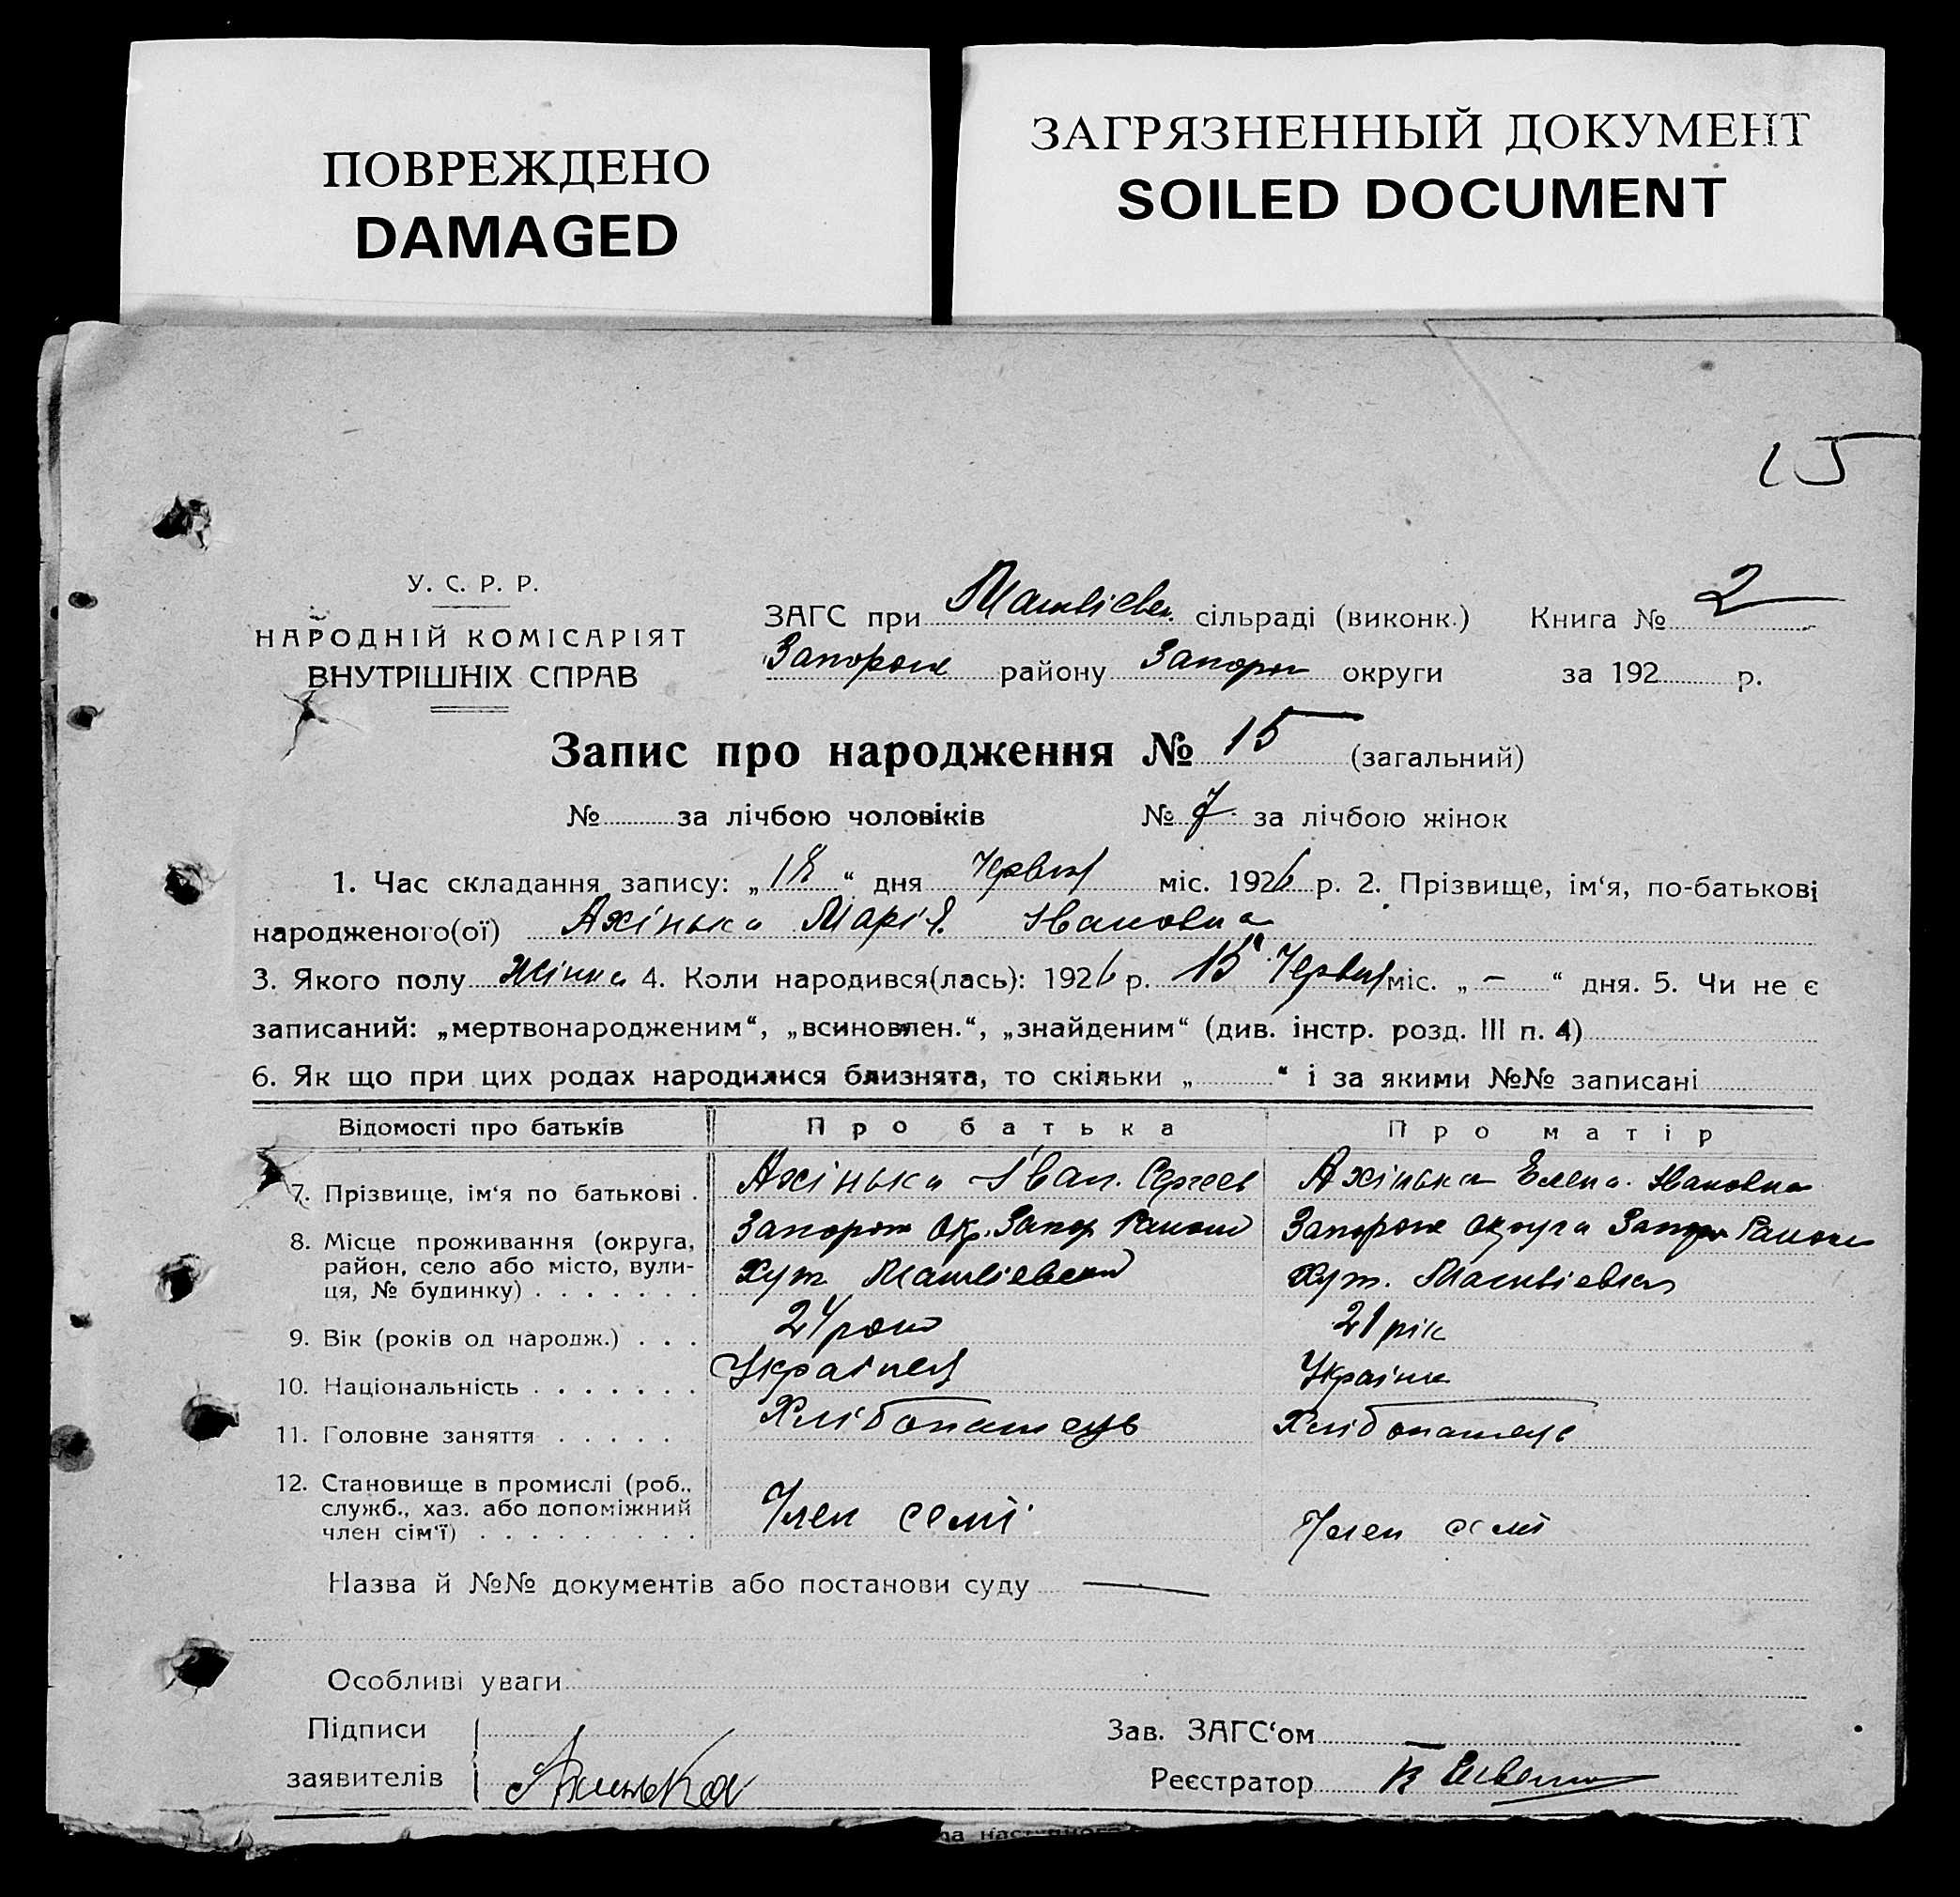 ПОВРЕЖДЕНО
DAMAGED
ЗАГРЯЗНЕННЫЙ ДОКУМЕНТ
SOILED DOCUMENT
15
У. С. Р. Р.
НАРОДНІЙ КОМІСАРІЯТ
ВНУТРІШНІХ СПРАВ
ЗАГС при Матвієвск. сільраді (виконк.) Книга № 2
Запорож району Запорож округи за 192 р.
Запис про народження № 15 (загальний)
№ за лічбою чоловіків № 7 за лічбою жінок
1. Час складання запису: „18“ дня Червня міс. 1926 р. 2. Прізвище, ім‘я, по-батькові
народженого(ої) Ахінька Марія Івановна
3. Якого полу Жінка 4. Коли народився(лась): 1926 р. 15 Червня міс. „ – “ дня. 5. Чи не є
записаний: „мертвонародженим“, „всиновлен.“, „знайденим“ (див. інстр. розд. III п. 4)
6. Як що при цих родах народилися близнята, то скільки „ “ і за якими №№ записані
Відомості про батьків Про батька Про матір
7. Прізвище, ім‘я по батькові . Ахінька Іван. Сергеев Ахінька Елена Івановна
8. Місце проживання (округа, район, село або місто, вулиця, № будинку) Запорож Окр. Запор Запорож округа Запор
Хут Хут.
9. Вік (років од народж.) . . . 24 21 рік
10. Національність Українец Українка
11. Головне заняття Хлібопашець Хлібопашець
12. Становище в промислі (роб., служб., хаз. або допоміжний член сім‘ї) Член семї Член семї
Назва й №№ документів або постанови суду —
Особливі уваги
Підписи
заявителів Ахинька
Зав. ЗАГС‘ом
Реєстратор